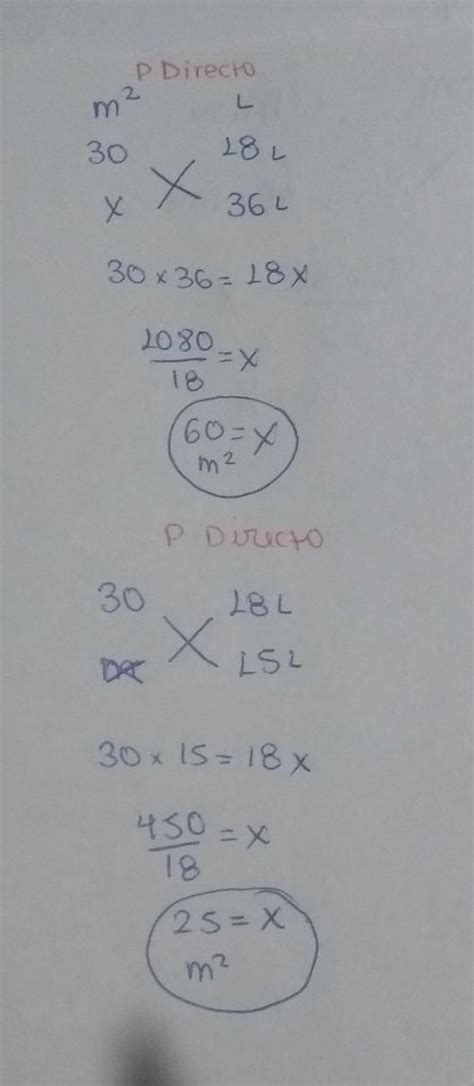 P Directo
m² L
30 18 L
x 36 L
30 × 36 = 18 x
1080/18 = x
60 = x
m²
P Directo
30 18 L
15 L
30 × 15 = 18 x
450/18 = x
25 = x
m²